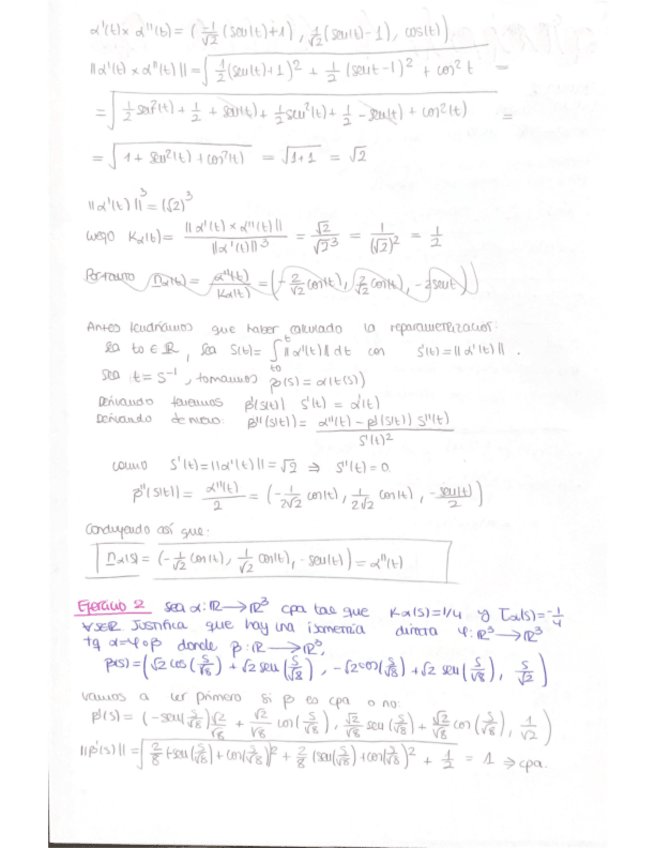 α'(t)× α''(t) = (-1/√2 (seu(t)+1), 1/√2 (seu(t)-1), cos(t))
||α'(t) × α''(t)|| = √(1/2 (seu(t)+1)² + 1/2 (seut-1)² + cos² t) =
= √(1/2 seu²(t) + 1/2 + seu(t) + 1/2 seu²(t) + 1/2 - seu(t) + cos²(t)) =
= √(1 + seu²(t) + cos²(t)) = √(1+1) = √2
||α'(t)||³ = (√2)³
luego Kα(t) = ||α'(t) × α''(t)|| / ||α'(t)||³ = √2/√2³ = 1/(√2)² = 1/2
Por tanto nα(t) = α''(t)/Kα(t) = (-2/√2 cos(t), 2/√2 cos(t), -2seut))
Antes tendríamos que haber calculado la reparametrización:
sea to ∈ ℝ, sea S(t) = ∫_to^t ||α'(t)|| dt con S'(t) = ||α'(t)||.
sea t = S⁻¹, tomamos β(s) = α(t(s))
Derivando tenemos β'(s(t)) S'(t) = α'(t)
Derivando de nuevo: β''(s(t)) = (α''(t) - β'(s(t)) S''(t)) / S'(t)²
como S'(t) = ||α'(t)|| = √2 ⇒ S''(t) = 0.
β''(s(t)) = α''(t)/2 = (-1/2√2 cos(t), 1/2√2 cos(t), -seu(t)/2)
Concluyendo así que:
nα(s) = (-1/√2 cos(t), 1/√2 cos(t), -seu(t)) = α''(t)
Ejercicio 2 sea α: ℝ → ℝ³ cpa tal que Kα(s) = 1/4 y τα(s) = -1/4
∀s∈ℝ Justifica que hay una isometría directa φ: ℝ³ → ℝ³
tq α = φ∘β donde β: ℝ → ℝ³,
β(s) = (√2 cos(s/√8) + √2 seu(s/√8), -√2 cos(s/√8) + √2 seu(s/√8), s/√2)
vamos a ver primero si β es cpa o no:
β'(s) = (-seu(s/√8) √2/√8 + √2/√8 cos(s/√8), √2/√8 seu(s/√8) + √2/√8 cos(s/√8), 1/√2)
||β'(s)|| = √(2/8 (-seu(s/√8) + cos(s/√8))² + 2/8 (seu(s/√8) + cos(s/√8))² + 1/2) = 1 ⇒ cpa.